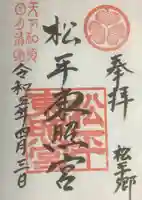 奉拝
松平郷
松平東照宮
天下和順
日月清明
令和二年四月三日